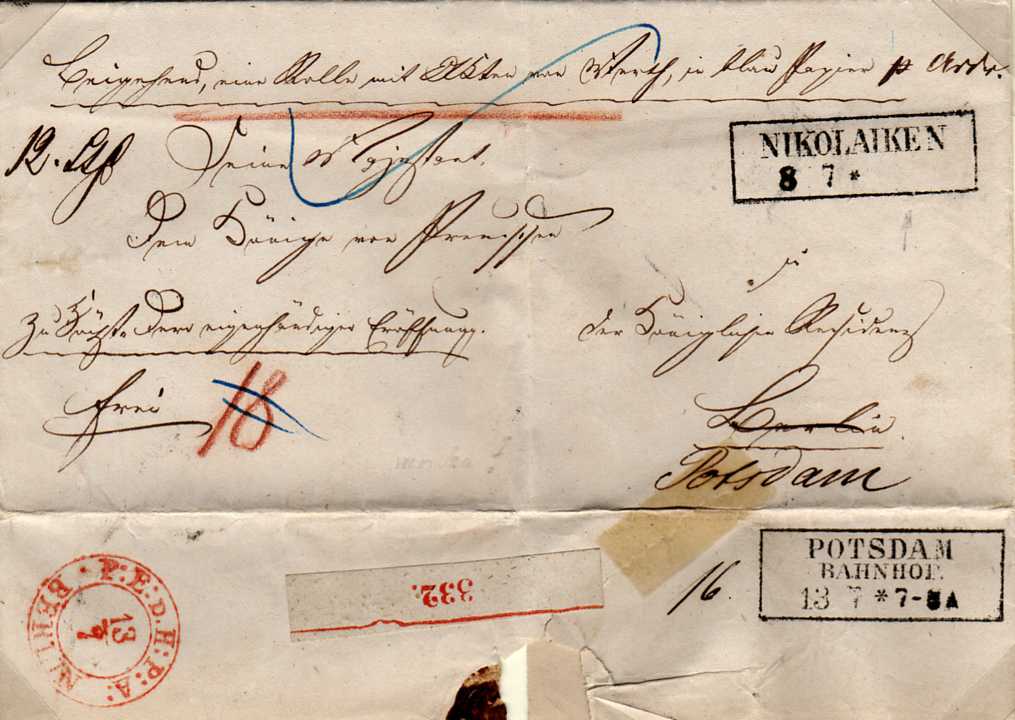 Beigehend, eine Rolle mit Akten von Werth, in blau Papier
Seine Majestaet
NIKOLAIKEN
8 7 *
Dem Könige von Preussen
zu
Zu Höchst Dero eigenhändiger Eröffnung.
der Königlichen Residenz
frei
18
Berlin.
Potsdam
POTSDAM
BAHNHOF.
13 7 * 7-8A
332.
16.
BERLIN · P:E:D:H:P:A:
13
7